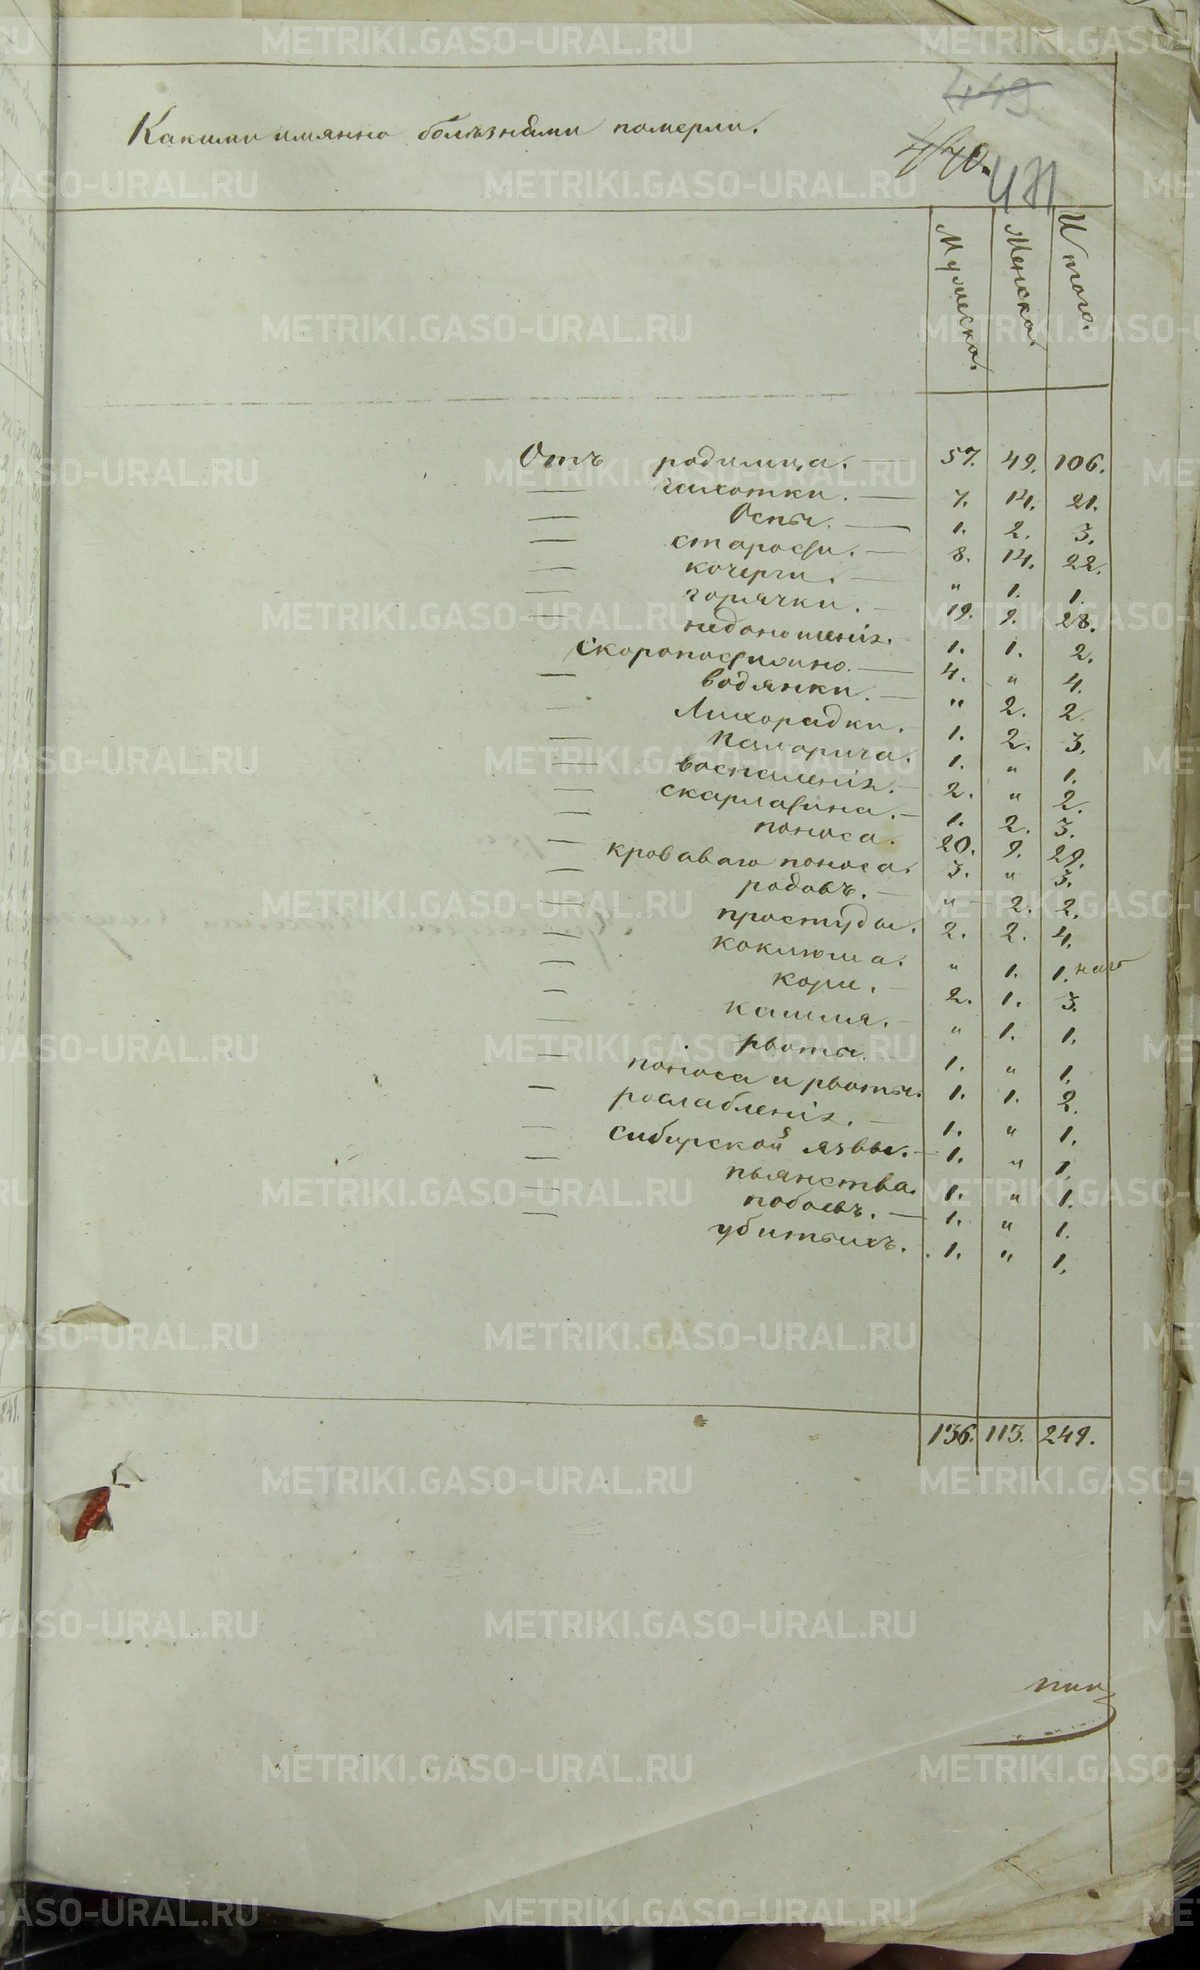 449
Какими имянно болѣзнями померли.
470.
471
Мужеска.
Женска.
Итого.
Отъ родимца. — 57. 49. 106.
— чахотки. — 7. 14. 21.
— Оспы. — 1. 2. 3.
— старости. — 8. 14. 22.
— кочерги. — " 1. 1.
— горячки. — 19. 9. 28.
— недоношенія. 1. 1. 2.
Скоропостижно. — 4. " 4.
— водянки. — " 2. 2.
— Лихорадки. — 1. 2. 3.
— 1. " 1.
— воспаленія. — 2. " 2.
— скарлатина. — 1. 2. 3.
— поноса. 20. 9. 29.
— кроваваго поноса. 3. " 3.
— родовъ. — " 2. 2.
— простуды. 2. 2. 4.
— коклюша. " 1. 1.
— кори. — 2. 1. 3.
— кашля. — " 1. 1.
— рвоты. 1. " 1.
— поноса и рвоты. 1. 1. 2.
— рослабленія. — 1. " 1.
— сибирской язвы. — 1. " 1.
— пьянства. 1. " 1.
— побоевъ. — 1. " 1.
— убитыхъ. 1. " 1.
136. 113. 249.
METRIKI.GASO-URAL.RU